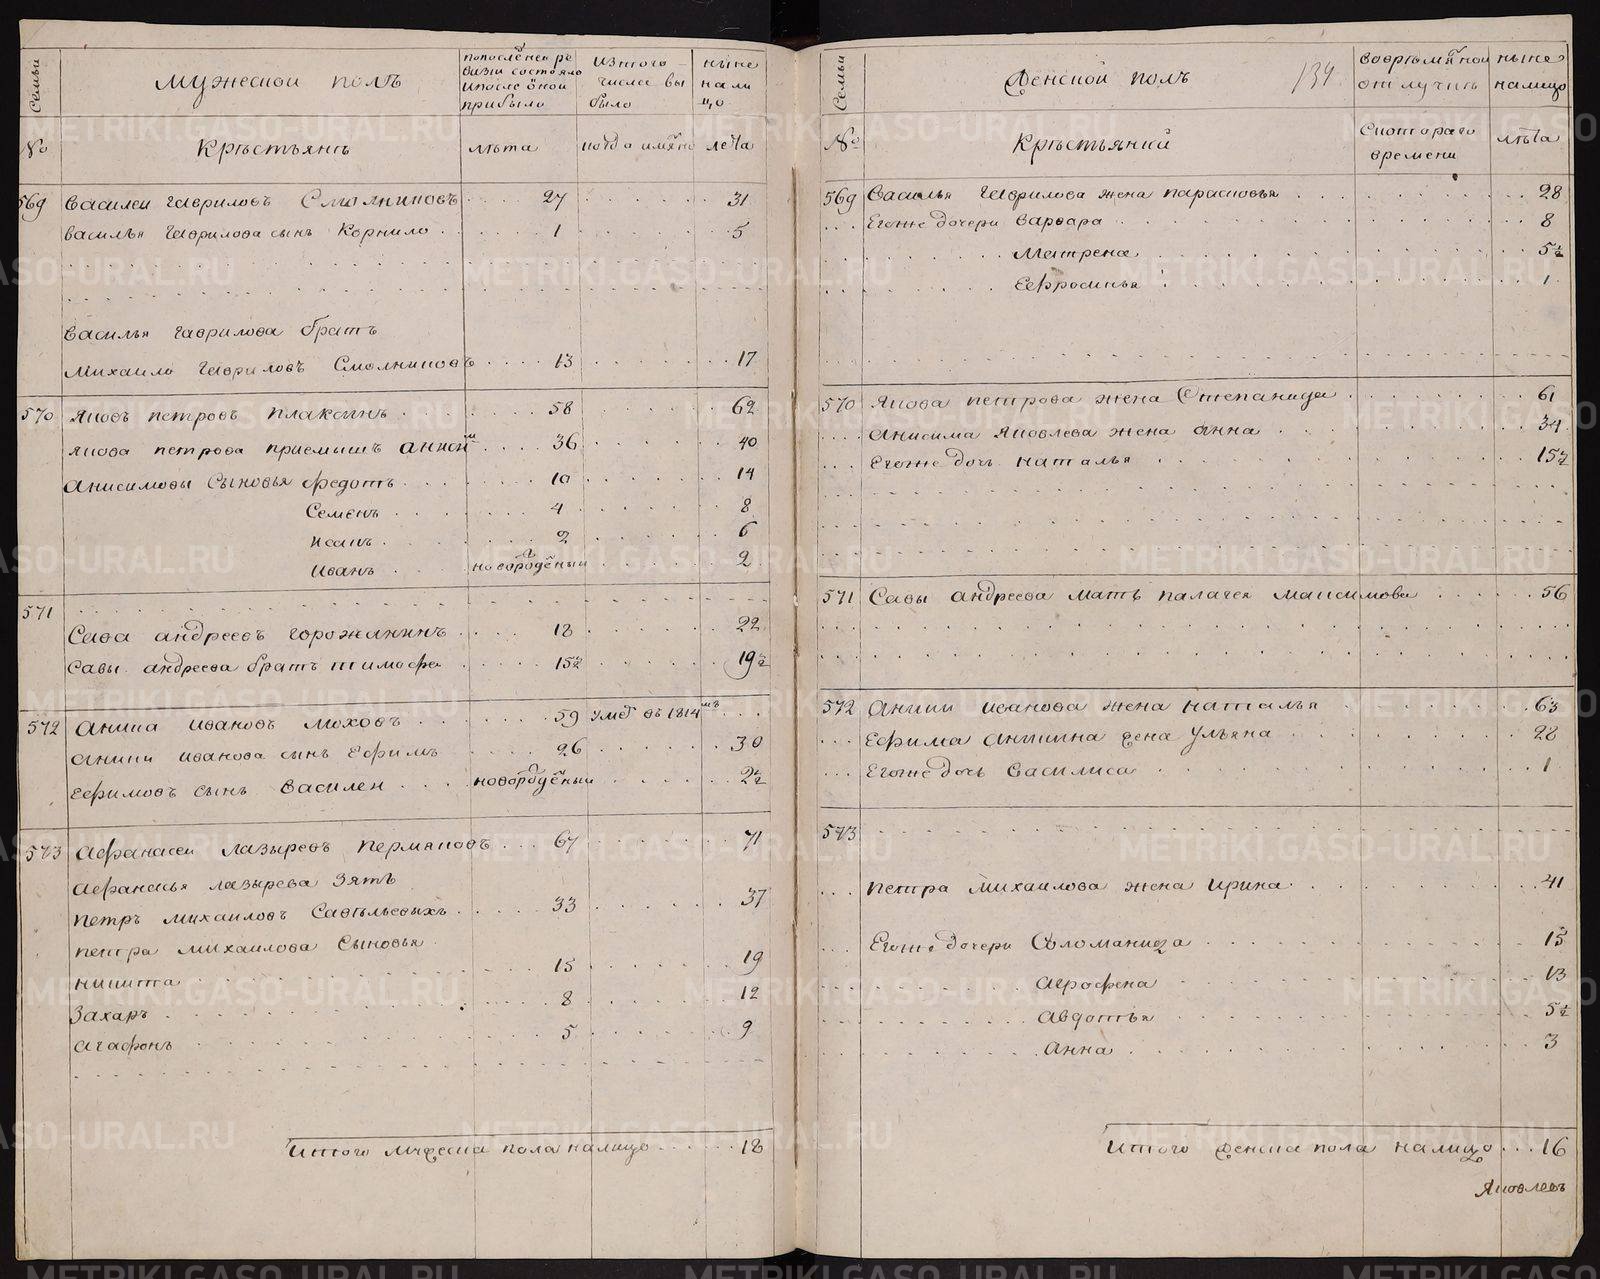 Семьи
Мужеской полъ
попоследнеи ре
визіи состояло
ипосле оной
прибыло
изтого
числа вы
было
ныне
нали
цо
№
Крестьянъ
лѣта
когда имянно
лета
569 Василеи Гавриловъ Смолниковъ 27 31
Василья Гаврилова сынъ Корнило 1 5
Василья Гаврилова братъ
Михаило Гавриловъ Смолниковъ 13 17
570 Яковъ Петровъ Плаксинъ 58 62
Якова Петрова приемышъ Аниси м 36 40
Анисимовы сыновья Федотъ 10 14
Семенъ 4 8
Исакъ 2 6
Иванъ новорожденыи 2
571
Сава Андреевъ Горожанинъ 18 22
Савы Андреева братъ Тимофеи 15½ 19½
572 Аника Ивановъ Моховъ 59 умѣ въ 1814мъ
Аники Иванова сынъ Ефимъ 26 30
Ефимовъ сынъ Василеи новорожденыи 2½
573 Афанасеи Лазыревъ Пермяковъ 67 71
Афанасья Лазырева зять
Петръ Михаиловъ Савѣльевыхъ 33 37
Петра Михаилова сыновья
Никита 15 19
Захаръ 8 12
Агафонъ 5 9
Итого мужеска пола налицо 18
Семьи
Женской полъ
134
вовременной
отлучкѣ
ныне
налицо
№
Крестьянки
скотораго
времени
лѣта
569 Василья Гаврилова жена Парасковья 28
Егоже дочери Варвара 8
Матрена 5½
Ефросинья 1
570 Якова Петрова жена Степанида 61
Анисима Яковлева жена Анна 34
Егоже дочь Наталья 15½
571 Савы Андреева мать Палагея Максимова 56
572 Аники Иванова жена Наталья 63
Ефима Аникина жена Ульяна 28
Егоже дочь Василиса 1
573
Петра Михаилова жена Ирина 41
Егоже дочери Соломанида 15
Агрофена 13
Авдотья 5½
Анна 3
Итого женска пола налицо 16
Яковлевъ
METRIKI.GASO-URAL.RU